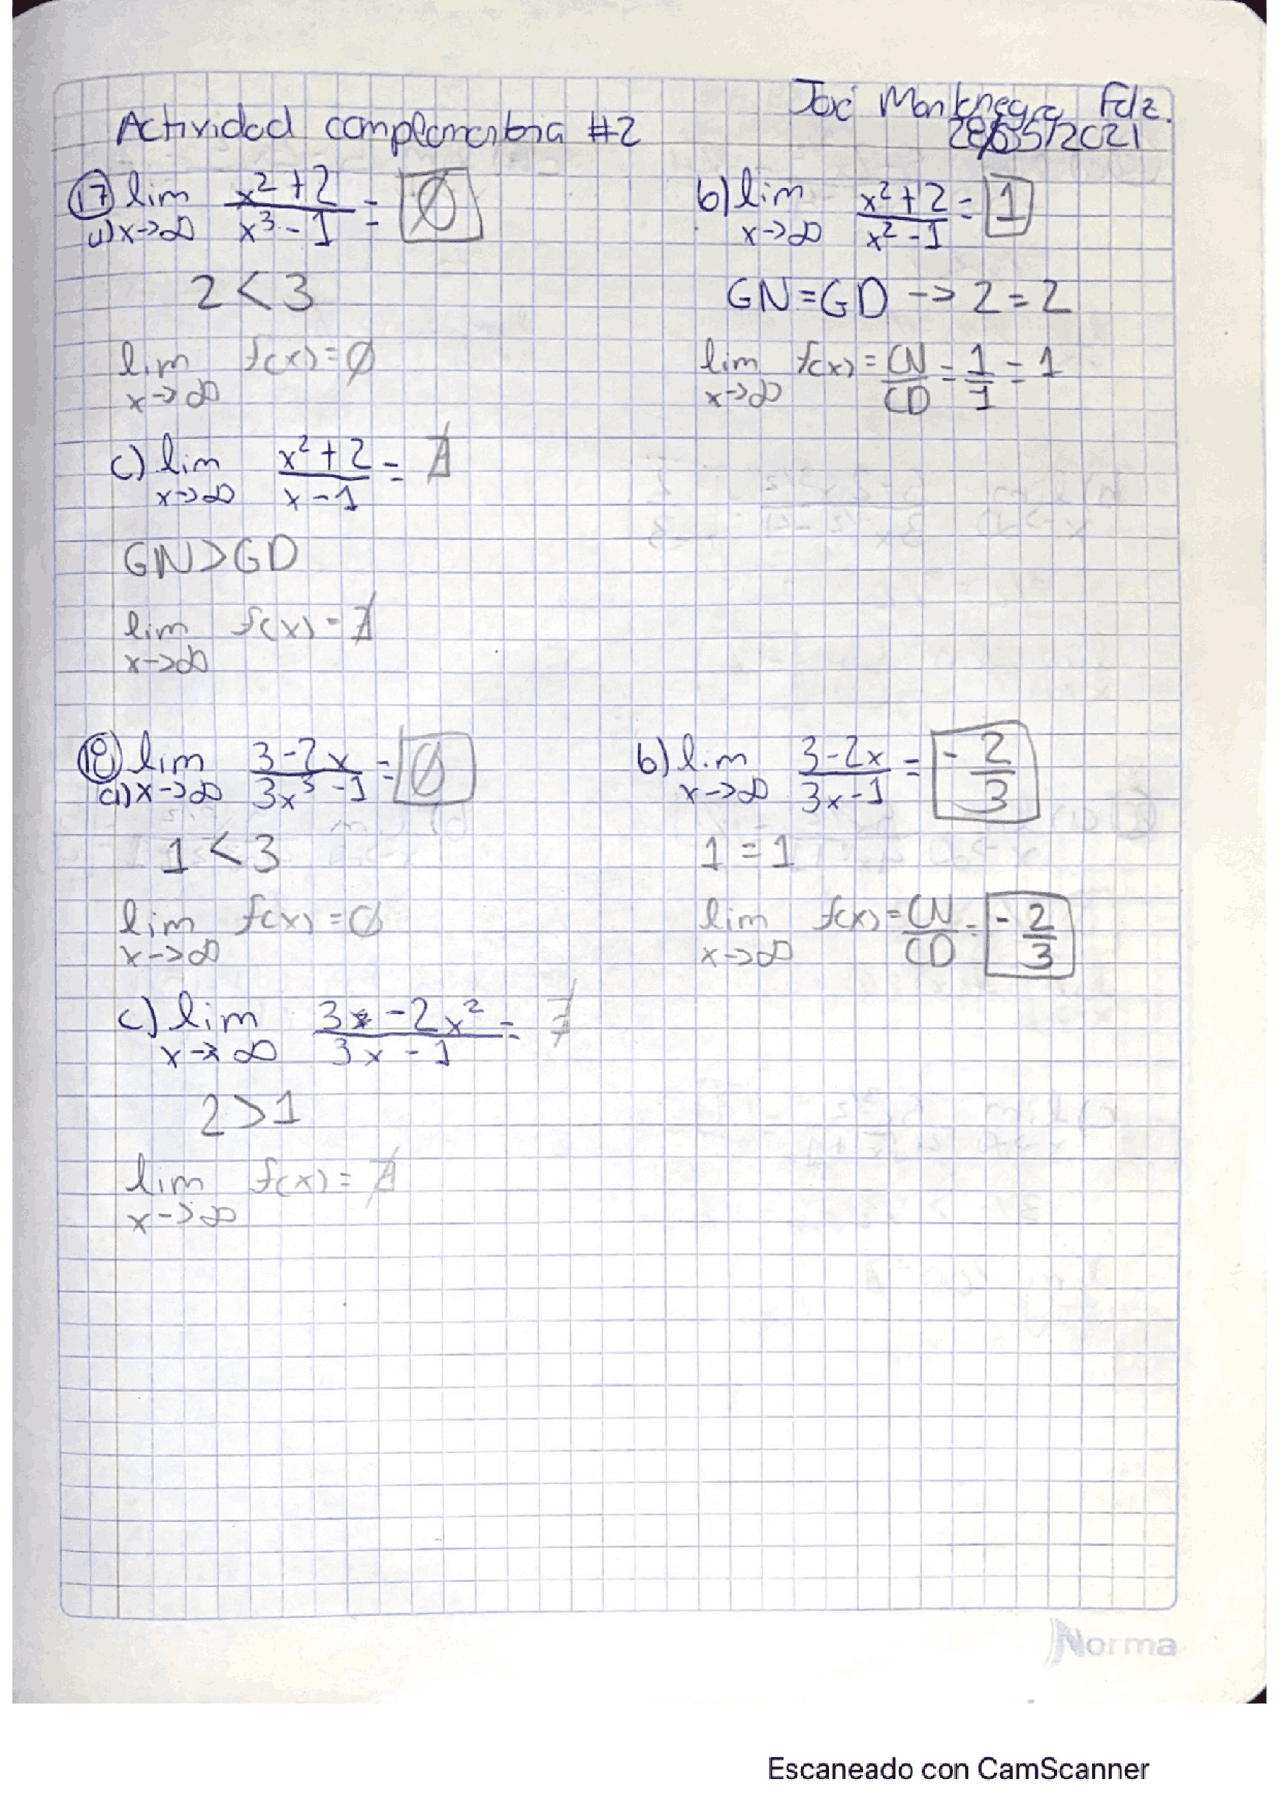 José Montenegro Fdz.
Actividad complementaria #2
28/05/2021
17 a) lim x->∞ x²+2 / x³-1 = 0
2 < 3
lim x->∞ f(x) = 0
b) lim x->∞ x²+2 / x²-1 = 1
GN=GD -> 2=2
lim x->∞ f(x) = CN/CD = 1/1 = 1
c) lim x->∞ x²+2 / x-1 = ∄
GN>GD
lim x->∞ f(x) = ∄
18 a) lim x->∞ 3-2x / 3x³-1 = 0
1 < 3
lim x->∞ f(x) = 0
b) lim x->∞ 3-2x / 3x-1 = -2/3
1 = 1
lim x->∞ f(x) = CN/CD = -2/3
c) lim x->∞ 3-2x² / 3x-1 = ∄
2 > 1
lim x->∞ f(x) = ∄
Norma
Escaneado con CamScanner